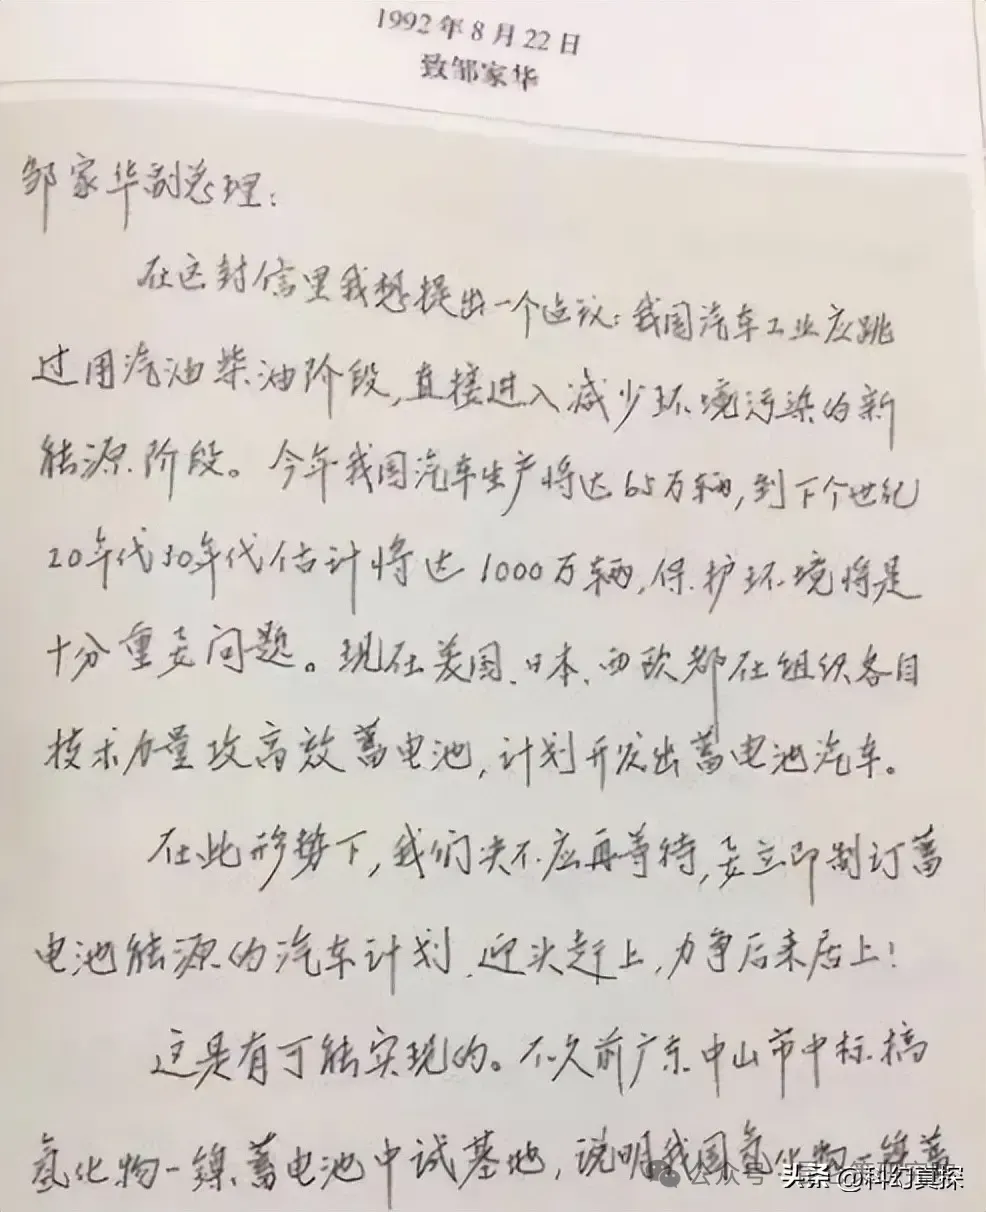 1992年8月22日
致邹家华
邹家华副总理：
在这封信里我想提出一个建议：我国汽车工业应跳
过用汽油柴油阶段，直接进入减少环境污染的新
能源阶段。今年我国汽车生产将达65万辆，到下个世纪
20年代30年代估计将达1000万辆，保护环境将是
十分重要问题。现在美国、日本、西欧都在组织各自
技术力量攻高效蓄电池，计划开发出蓄电池汽车。
在此形势下，我们决不应再等待，要立即制订蓄
电池能源的汽车计划，迎头赶上，力争后来居上！
这是有可能实现的。不久前广东中山市中标搞
氢化物-镍蓄电池中试基地，说明我国氢化物-镍蓄
公众号
头条 @科幻真探